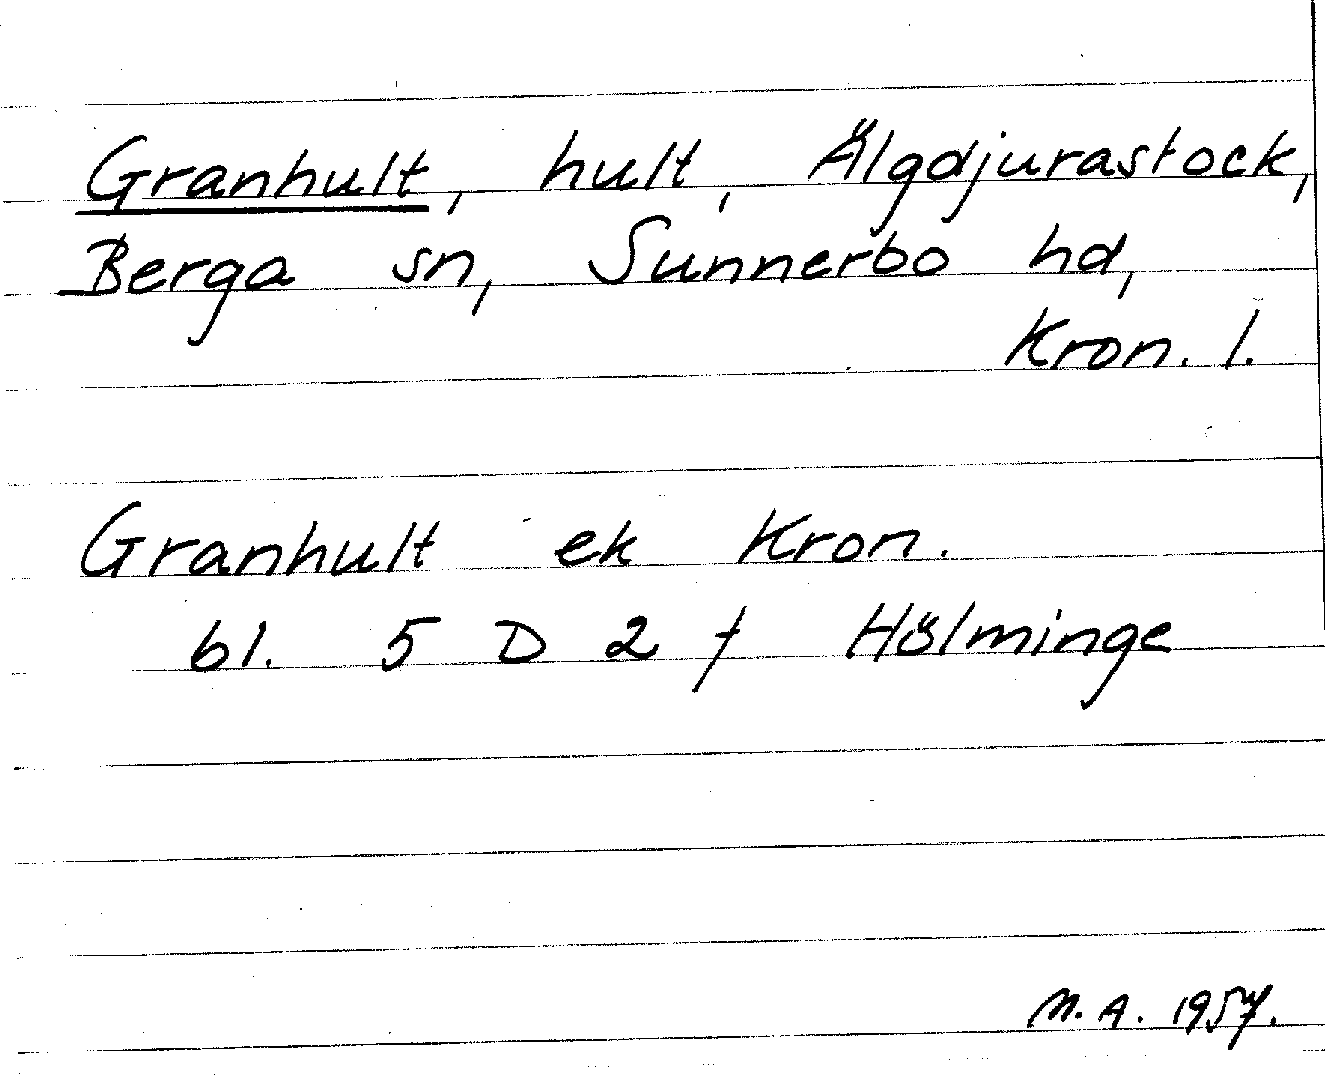 Granhult, hult, Älgdjurastock,
Berga sn, Sunnerbo hd,
Kron. l.
Granhult ek Kron.
bl. 5 D 2 f Hölminge
M. A. 1957.